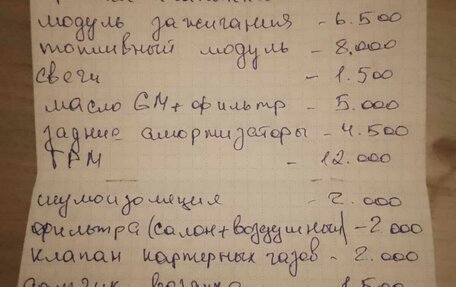 модуль зажигания - 6.500
топливный модуль - 8.000
свечи - 1.500
масло GM + фильтр - 5.000
задние амортизаторы - 4.500
ГРМ - 12.000
шумоизоляция - 2.000
фильтра (салон + воздушный) - 2.000
клапан картерных газов - 2.000
датчик - 1.500